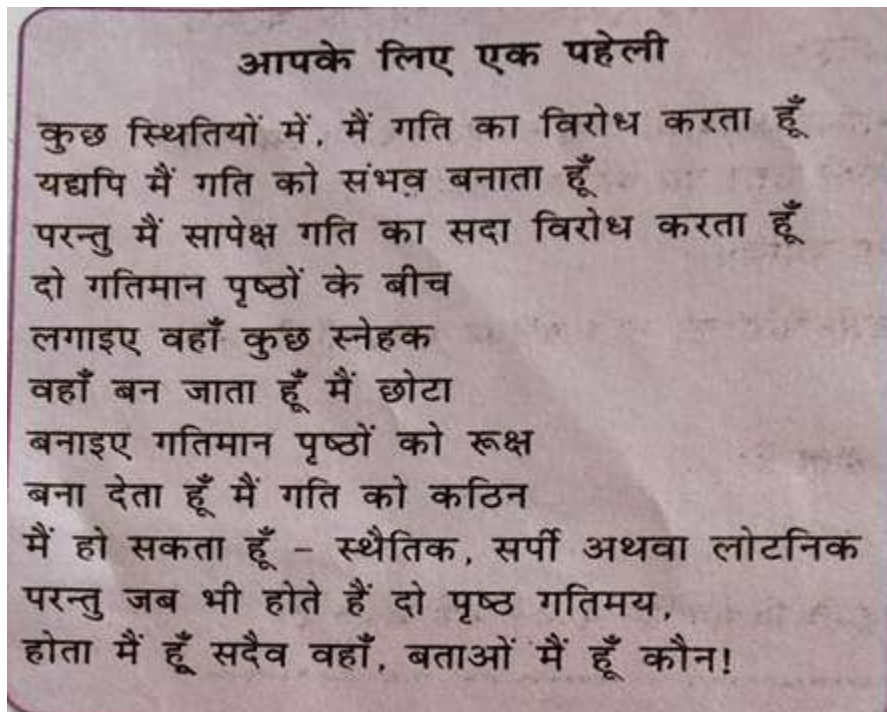 आपके लिए एक पहेली
कुछ स्थितियों में, मैं गति का विरोध करता हूँ
यद्यपि मैं गति को संभव बनाता हूँ
परन्तु मैं सापेक्ष गति का सदा विरोध करता हूँ
दो गतिमान पृष्ठों के बीच
लगाइए वहाँ कुछ स्नेहक
वहाँ बन जाता हूँ मैं छोटा
बनाइए गतिमान पृष्ठों को रूक्ष
बना देता हूँ मैं गति को कठिन
मैं हो सकता हूँ - स्थैतिक, सर्पी अथवा लोटनिक
परन्तु जब भी होते हैं दो पृष्ठ गतिमय,
होता मैं हूँ सदैव वहाँ, बताओं मैं हूँ कौन!